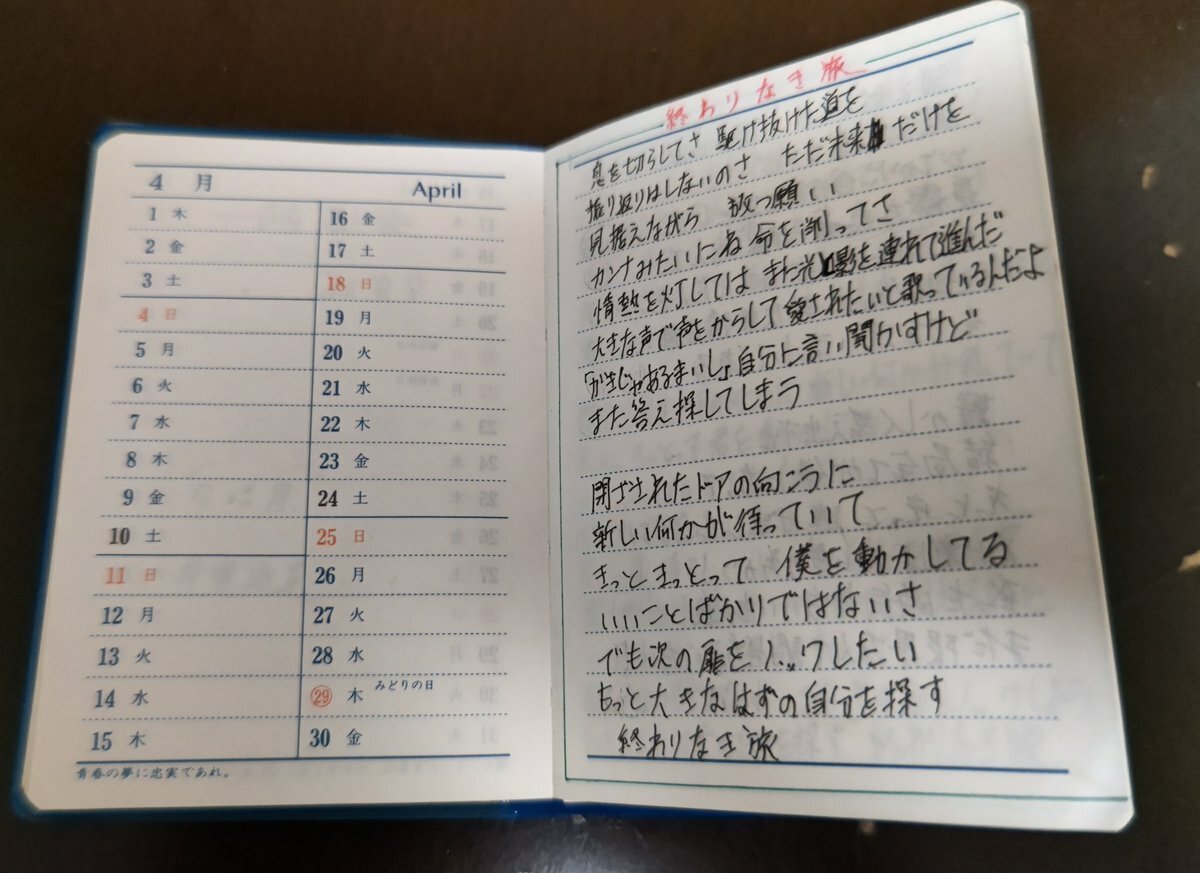 4 月 April
1 木
2 金
3 土
4 日
5 月
6 火
7 水
8 木
9 金
10 土
11 日
12 月
13 火
14 水
15 木
16 金
17 土
18 日
19 月
20 火
21 水
22 木
23 金
24 土
25 日
26 月
27 火
28 水
29 木 みどりの日
30 金
青春の夢に忠実であれ。
終わりなき旅
息を切らしてさ 駆け抜けた道を
振り返りはしないのさ ただ未来だけを
見据えながら 放つ願い
カンナみたいにね 命を削ってさ
情熱を灯しては また光 影を連れて進んだ
大きな声で声をからして 愛されたいと歌っているんだよ
「ガキじゃあるまいし」自分に言い聞かすけど
また答え探してしまう
閉ざされたドアの向こうに
新しい何かが待っていて
きっときっとって 僕を動かしてる
いいことばかりではないさ
でも次の扉をノックしたい
もっと大きなはずの自分を探す
終わりなき旅